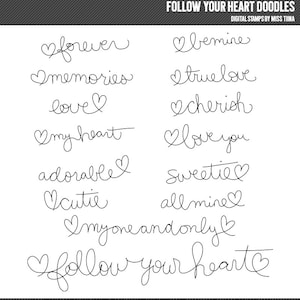 FOLLOW YOUR HEART DOODLES
DIGITAL STAMPS BY MISS TIINA
forever
bemine
memories
truelove
love
cherish
my heart
love you
adorable
sweetie
cutie
all mine
my one and only
follow your heart